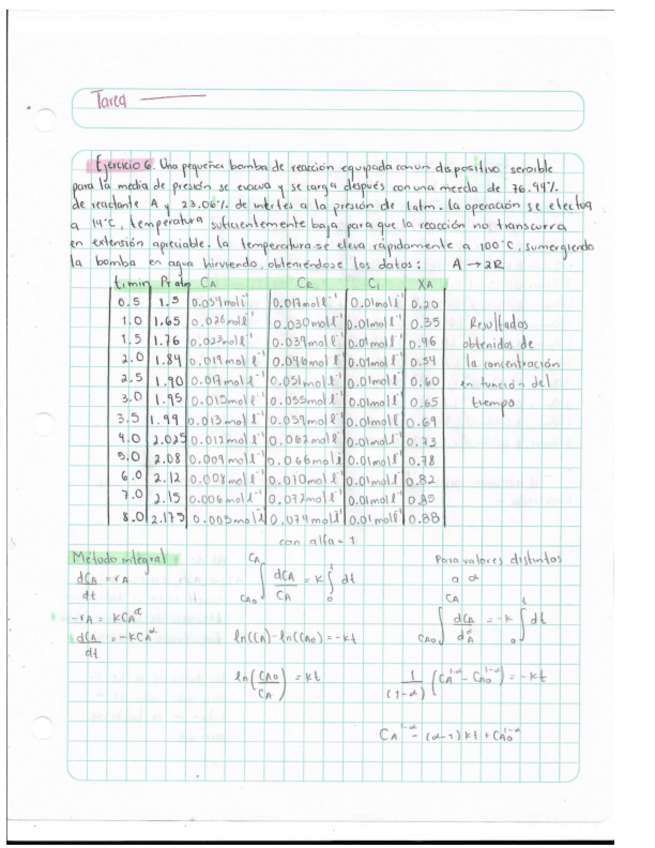 Tarea
Ejercicio 6. Una pequeña bomba de reacción equipada con un dispositivo sensible
para la media de presión se evacua y se carga después con una mezcla de 76.94%
de reactante A y 23.06% de inertes a la presión de 1atm. la operación se efectua
a 14°C, temperatura suficientemente baja para que la reacción no transcurra
en extensión apreciable. la temperatura se eleva rápidamente a 100°C, sumergiendo
la bomba en agua hirviendo, obteniéndose los datos: A → 2R
t,min P,atm CA CR CI XA
0.5 1.5 0.034mol l⁻¹ 0.017mol l⁻¹ 0.01mol l⁻¹ 0.20
1.0 1.65 0.026mol l⁻¹ 0.030mol l⁻¹ 0.01mol l⁻¹ 0.35 Resultados
1.5 1.76 0.023mol l⁻¹ 0.039mol l⁻¹ 0.01mol l⁻¹ 0.46 obtenidos de
2.0 1.84 0.019mol l⁻¹ 0.046mol l⁻¹ 0.01mol l⁻¹ 0.54 la concentración
2.5 1.90 0.017mol l⁻¹ 0.051mol l⁻¹ 0.01mol l⁻¹ 0.60 en función del
3.0 1.95 0.015mol l⁻¹ 0.055mol l⁻¹ 0.01mol l⁻¹ 0.65 tiempo
3.5 1.99 0.013mol l⁻¹ 0.059mol l⁻¹ 0.01mol l⁻¹ 0.69
4.0 2.025 0.012mol l⁻¹ 0.062mol l⁻¹ 0.01mol l⁻¹ 0.73
5.0 2.08 0.009mol l⁻¹ 0.066mol l⁻¹ 0.01mol l⁻¹ 0.78
6.0 2.12 0.008mol l⁻¹ 0.070mol l⁻¹ 0.01mol l⁻¹ 0.82
7.0 2.15 0.006mol l⁻¹ 0.072mol l⁻¹ 0.01mol l⁻¹ 0.85
8.0 2.175 0.005mol l⁻¹ 0.074mol l⁻¹ 0.01mol l⁻¹ 0.88
con alfa = 1
Método integral
dCA/dt = rA
-rA = kCA^α
dCA/dt = -kCA^α
∫CA0^CA dCA/CA = k∫0^t dt
ln(CA)-ln(CA0) = -kt
ln(CA0/CA) = kt
Para valores distintos
a α
∫CA0^CA dCA/dA^α = -k∫0^t dt
1/(1-α) (CA^1-α - CA0^1-α) = -kt
CA^1-α = (α-1)kt + CA0^1-α